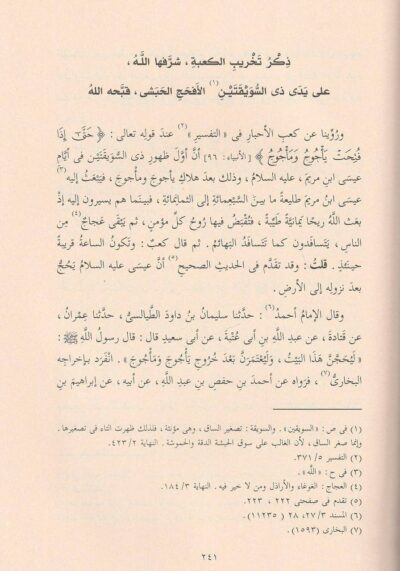 ذِكْرُ تَخْرِيبِ الكعبةِ ، شرَّفها اللَّهُ ،
على يَدَى ذى السُّوَيْقَتَيْنِ(١) الأَفْحَجِ الحَبَشى ، قبَّحه اللهُ
ورُوِّينا عن كعبِ الأحبارِ فى « التفسيرِ »(٢) عندَ قولِه تعالى : ﴿ حَتَّىٰٓ إِذَا
فُتِحَتْ يَأْجُوجُ وَمَأْجُوجُ ﴾ [الأنبياء: ٩٦] أنَّ أوَّلَ ظهورِ ذى السُّوَيقَتَيْن فى أيَّامِ
عيسى ابنِ مريمَ ، عليه السلامُ ، وذلك بعدَ هلاكِ يأجوجَ ومأجوجَ ، فيَبْعَثُ إليه(٣)
عيسى ابنُ مريمَ طليعةً ما بينَ السَّبْعِمائةِ إلى الثمانِمائةِ ، فبينما هم يسيرون إليه إذْ
بعَث اللَّهُ ريحًا يَمانيَّةً طَيِّبةً ، فتُقْبَضُ فيها روحُ كلِّ مؤمنٍ ، ثم يَبْقَى عَجاجٌ(٤) مِن
الناسِ ، يَتَسافَدون كما تَتَسافَدُ البَهائمُ . ثم قال كعبٌ : وتكونُ الساعةُ قريبةً
حينَئذٍ . قلتُ : وقد تقدَّم فى الحديثِ الصحيحِ(٥) أنَّ عيسى عليه السلامُ يَحُجُّ
بعدَ نزولِه إلى الأرضِ .
وقال الإمامُ أحمدُ(٦) : حدَّثنا سليمانُ بنُ داودَ الطَّيالسىُّ ، حدَّثنا عِمْرانُ ،
عن قَتادةَ ، عن عبدِ اللَّهِ بنِ أبى عُتْبةَ ، عن أبى سعيدٍ قال : قال رسولُ اللَّهِ ﷺ :
« لَيُحَجَّنَّ هَذَا البَيْتُ ، وَلَيُعْتَمَرَنَّ بَعْدَ خُرُوجِ يَأْجُوجَ وَمَأْجُوجَ » . انْفَرَد بإخراجِه
البخارىُّ(٧) ، فرَواه عن أحمدَ بنِ حفصِ بنِ عبدِ اللَّهِ ، عن أبيه ، عن إبراهيمَ بنِ
(١) فى ص : « السويقين » . والسويقة : تصغير الساق ، وهى مؤنثة ، فلذلك ظهرت التاء فى تصغيرها .
وإنما صغر الساق ، لأن الغالب على سوق الحبشة الدقة والحموشة . النهاية ٤٢٣/٢ .
(٢) التفسير ٣٧١/٥ .
(٣) فى ح : « اللَّه» .
(٤) العجاج : الغوغاء والأراذل ومن لا خير فيه . النهاية ١٨٤/٣ .
(٥) تقدم فى صفحتى ٢٢٢ ، ٢٢٣ .
(٦) المسند ٢٧/٣، ٢٨ ( ١١٢٣٥) .
(٧) البخارى (١٥٩٣) .
٢٤١